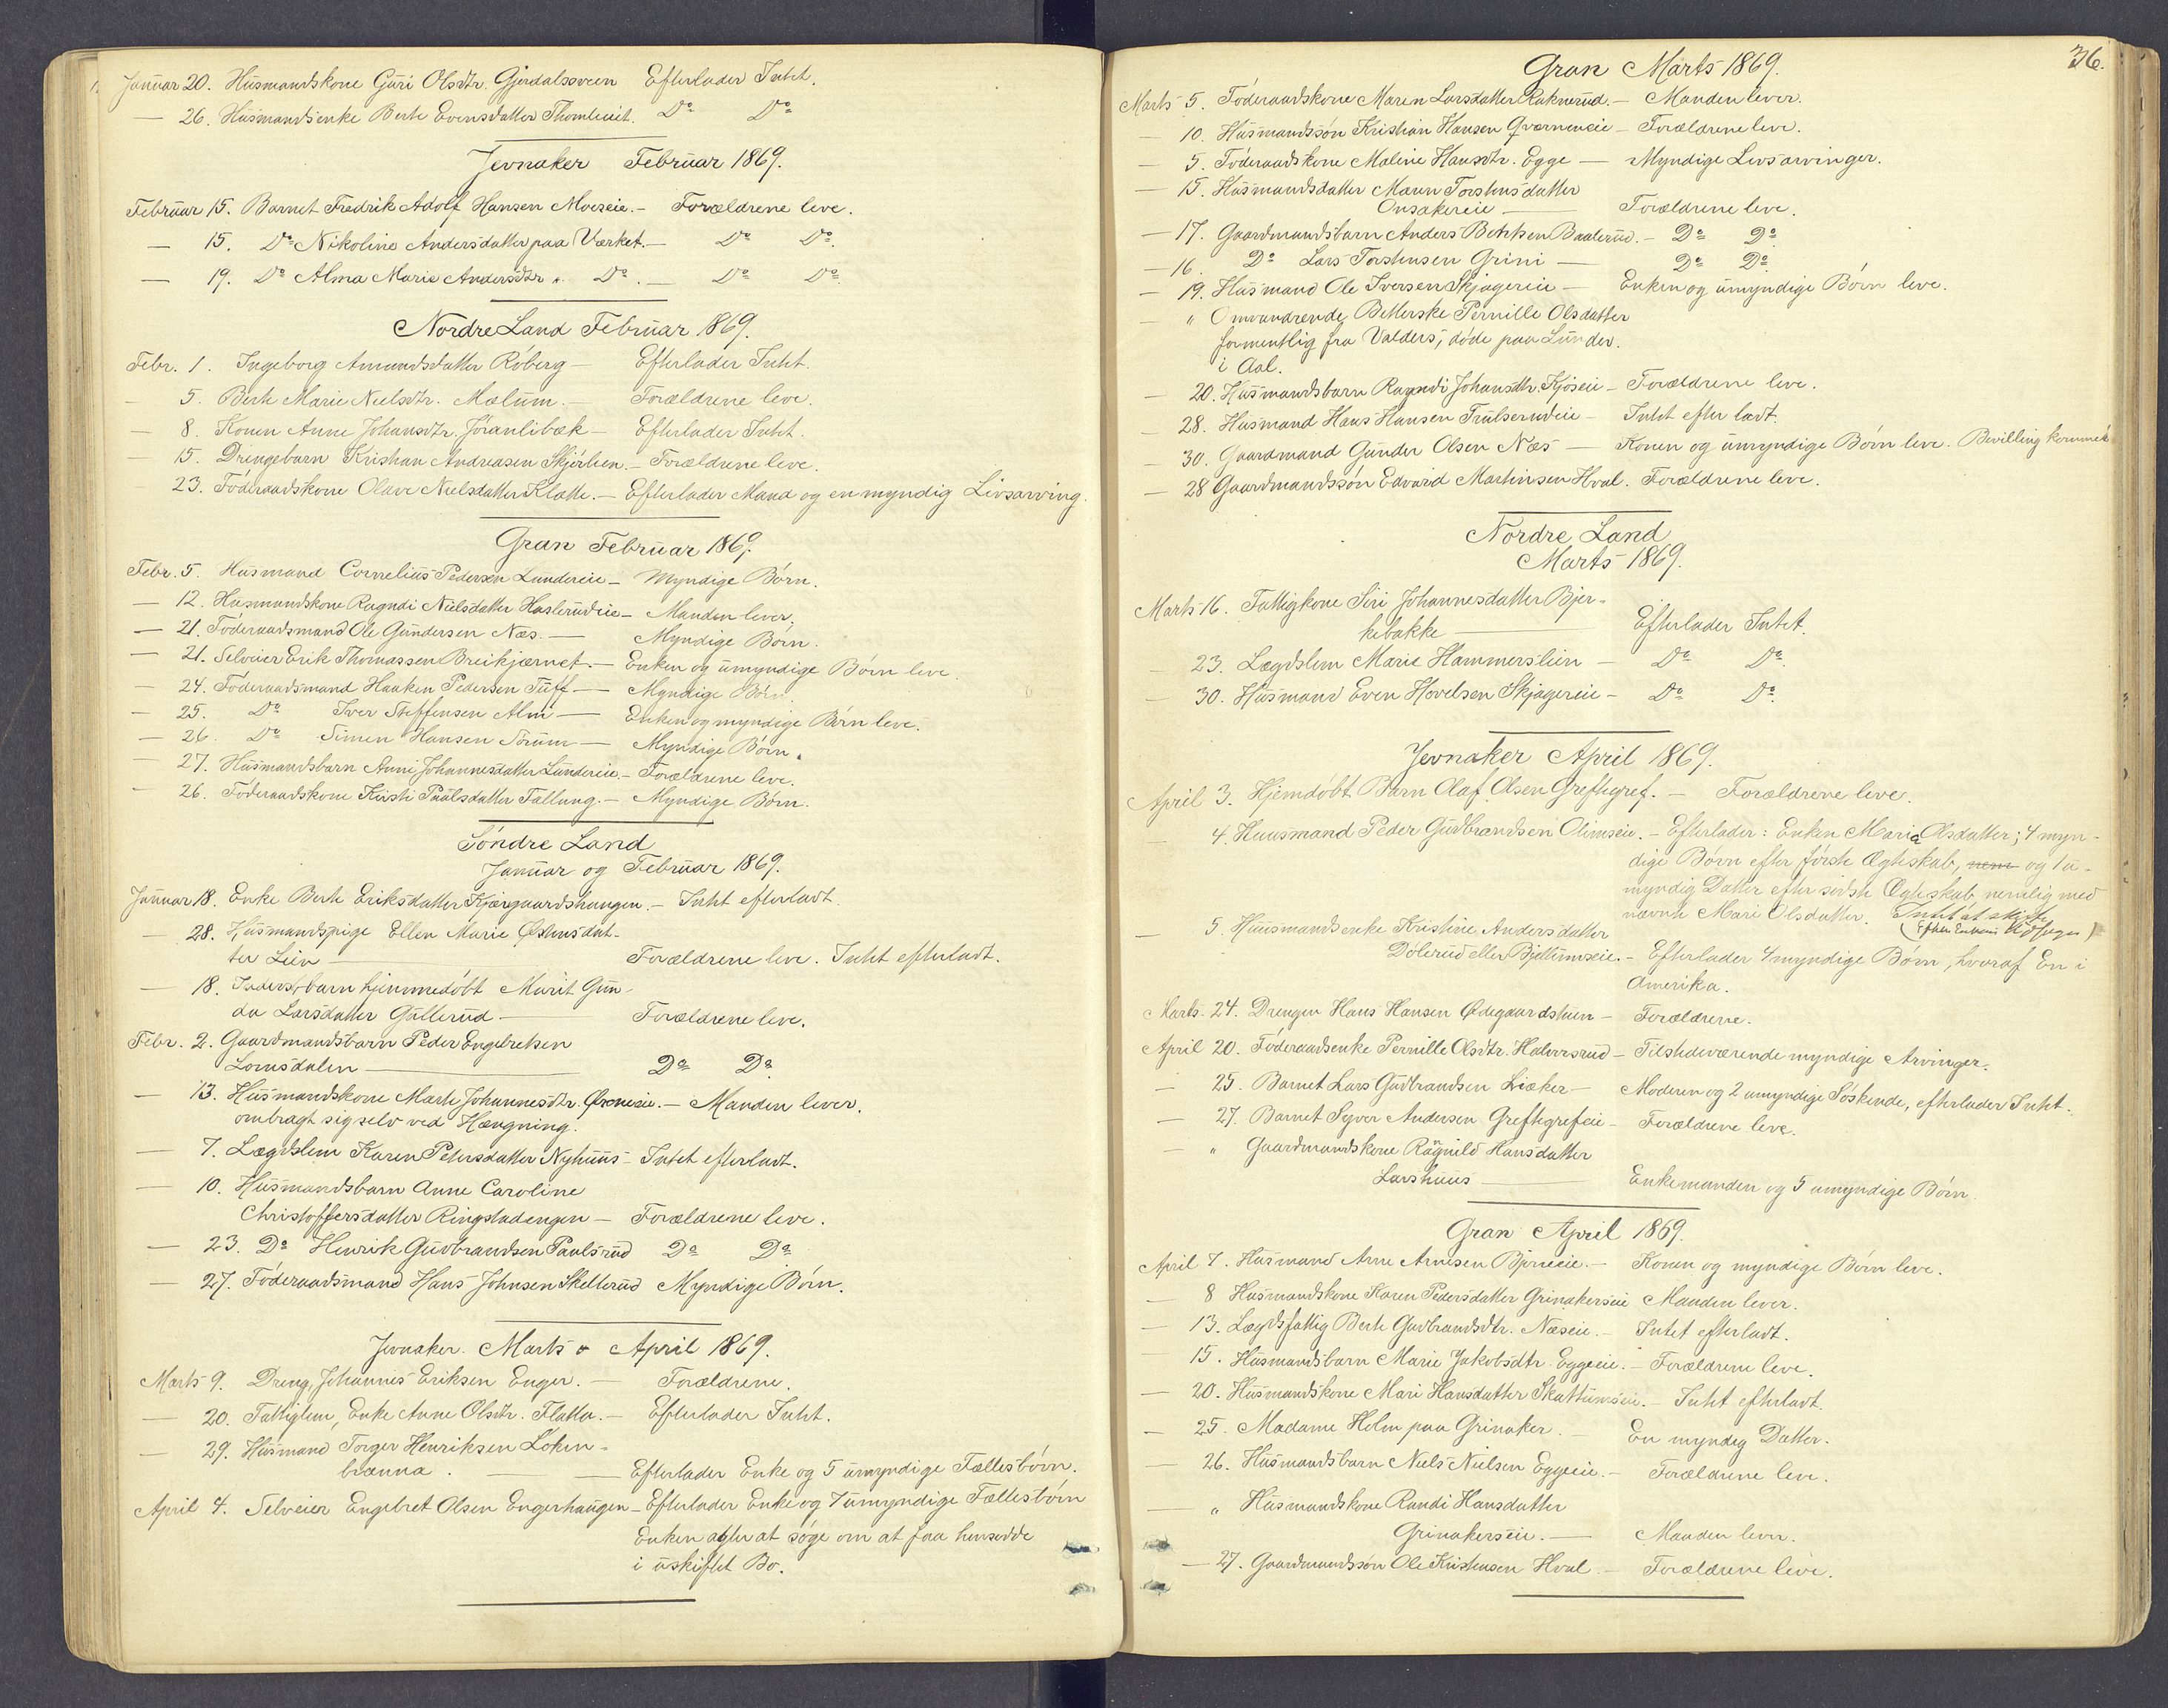 Januar 20. Husmandskone Guri Olsdtr. Gjerdalssveen Efterlader Intet.
— 26. Husmandsenke Berte Evensdatter Thomleeit. Do Do
Jevnaker Februar 1869.
Februar 15. Barnet Fredrik Adolf Hansen Moeseie. – Forældrene leve.
— 15. Do Nikoline Andersdatter paa Værket. – Do Do
— 19. Do Alma Marie Andersdtr " Do. – Do Do
Nordre Land Februar 1869.
Febr. 1. Ingeborg Amundsdatter Röberg – Efterlader Intet.
— 5. Berte Marie Nielsdtr. Mælum. – Forældrene leve.
— 8. Konen Anne Johansdtr. Jöranlibæk – Efterlader Intet.
— 15. Drengebarn Kristian Andreasen Skjörlien. – Forældrene leve.
23. Föderaadskone Olave Nielsdatter Klatte. – Efterlader Mand og en myndig Livsarving.
Gran Februar 1869.
Febr. 5. Husmand Cornelius Pedersen Lundereie – Myndige Börn.
— 12. Husmandskone Ragndi Nielsdatter Haslerudeie – Manden lever.
— 21. Föderaadsmand Ole Gundersen Næs. – Myndige Börn.
— 21. Selveier Erik Thomassen Breikjærnet. – Enken og umyndige Börn leve.
— 24. Föderaadsmand Haaken Pedersen Tuff – Myndige Börn
— 25. Do Iver Steffensen Alm – Enken og myndige Börn leve.
— 26. Do Simen Hansen Sörum – Myndige Börn.
— 27. Husmandsbarn Anni Johannesdatter Lundereie. – Forældrene leve.
— 26. Föderaadskone Kirsti Paulsdatter Tallung. – Myndige Börn.
Söndre Land
Januar og Februar 1869.
Januar 18. Enke Berte Eriksdatter Kjærgaardshaugen. – Intet efterladt.
— 28. Husmandspige Ellen Marie Østensdat-
ter Lien – Forældrene leve. Intet efterladt.
— 18. Inderstbarn hjemmedöbt Marit Gun-
da Larsdatter Gullerud – Forældrene leve.
Febr. 2. Gaardmandsbarn Peder Engebretsen
Lomsdalen – Do Do
— 13. Husmandskone Marte Johannesdtr. – Manden lever.
ombragt sig selv ved Hængning.
— 7. Lægdslem Karen Petersdatter Nyhuus – Intet efterladt.
— 10. Husmandsbarn Anne Caroline
Christoffersdatter Ringstadengen – Forældrene leve.
— 23. Do Henrik Gudbrandsen Paulsrud Do Do
— 27. Föderaadsmand Hans Johnsen Skellerud Myndige Börn.
Jevnaker. Marts o April 1869.
Marts 9. Dreng, Johannes Eriksen Enger. – Forældrene.
— 20. Fattiglem, Enke Anne Olsdtr. Flatla. – Efterlader Intet.
— 29. Husmand Torger Henriksen Loken-
brænna. – Efterlader Enke og 5 umyndige Fællesbörn.
April 4. Selveier Engebret Olsen Engerhaugen – Efterlader Enke og 7 umyndige Fællesbörn
Enken agter at söge om at faa hensidde
i uskiftet Bo.
36.
Gran Marts 1869.
Marts 5. Föderaadskone Maren Larsdatter Raknerud. – Manden lever.
— 10. Husmandssön Kristian Hansen Qværneneie – Forældrene leve.
— 5. Föderaadskone Maline Hansdtr. Egge – Myndige Livsarvinger.
— 15. Husmandsdatter Maren Torstensdatter
Onsakereie – Forældrene leve.
— 17. Gaardmandsbarn Anders Berthsen Baalerud. – Do Do
— 16. Do Lars Torstensen Grini – Do Do
— 19. Husmand Ole Iversen Skjagereie – Enken og umyndige Börn leve.
— " Omvandrende Betlerske Pernille Olsdatter
formentlig fra Valders, döde paa Lunder.
i Aal.
— 20. Husmandsbarn Ragndi Johansdtr. Kjöseie – Forældrene leve.
— 28. Husmand Hans Hansen Trulserudeie – Intet efterladt.
— 30. Gaardmand Gunder Olsen Næs – Konen og umyndige Börn leve. Bevilling kommer
— 28 Gaardmandssön Edvard Martinsen Hval. Forældrene leve.
Nordre Land
Marts 1869.
Marts 16. Fattigkone Siri Johannesdatter Bjer-
kebakke – Efterlader Intet.
— 23. Lægdslem Marie Hammerslien – Do Do
— 30. Husmand Even Hovelsen Skjagereie – Do Do
Jevnaker April 1869.
April 3. Hjemdöbt Barn Olaf Olsen Greftegref. – Forældrene leve.
— 4. Huusmand Peder Gudbrandsen Olimseie. – Efterlader: Enken Maria Olsdatter; 4 myn-
dige Börn efter förste Ægteskab, nem og 1 u-
myndig Datter efter sidste Ægteskab, nemlig med
nævnte Mari Olsdatter. Intet at skifte
(Efter Enkens Udsagn)
— 5. Huusmandsenke Kristine Andersdatter
Dölerud eller Bjellumseie. – Efterlader 4 myndige Börn, hvoraf En i
Amerika.
Marts 24. Drengen Hans Hansen Ødegaardstuen – Forældrene.
April 20. Föderaadsenke Pernille Olsdtr. Halvorsrud – Tilstedeværende myndige Arvinger.
— 25. Barnet Lars Gudbrandsen Liaker – Moderen og 2 umyndige Söskende, efterlader Intet.
— 27. Barnet Syver Andersen Greftegrefeie – Forældrene leve.
— " Gaardmandskone Ragnild Hansdatter
Larshuus – Enkemanden og 5 umyndige Börn.
Gran April 1869.
April 7. Husmand Arne Arnesen Bjoneeie. – Konen og myndige Börn leve.
— 8 Husmandskone Karen Pedersdatter Grinakerseie Manden lever.
— 13. Lægdsfattig Berte Gudbrandsdtr. Næseie. – Intet efterladt.
— 15. Husmandsbarn Marie Jakobsdtr. Eggeeie. – Forældrene leve.
— 20. Husmandskone Mari Hansdatter Skattumseie. – Intet efterladt.
— 25. Madame Holm paa Grinaker. – En myndig Datter.
— 26. Husmandsbarn Niels Nielsen Eggeeie. – Forældrene leve.
— " Husmandskone Randi Hansdatter
Grinakerseie. – Manden lever.
— 27. Gaardmandssön Ole Kristensen Hval. – Forældrene leve.